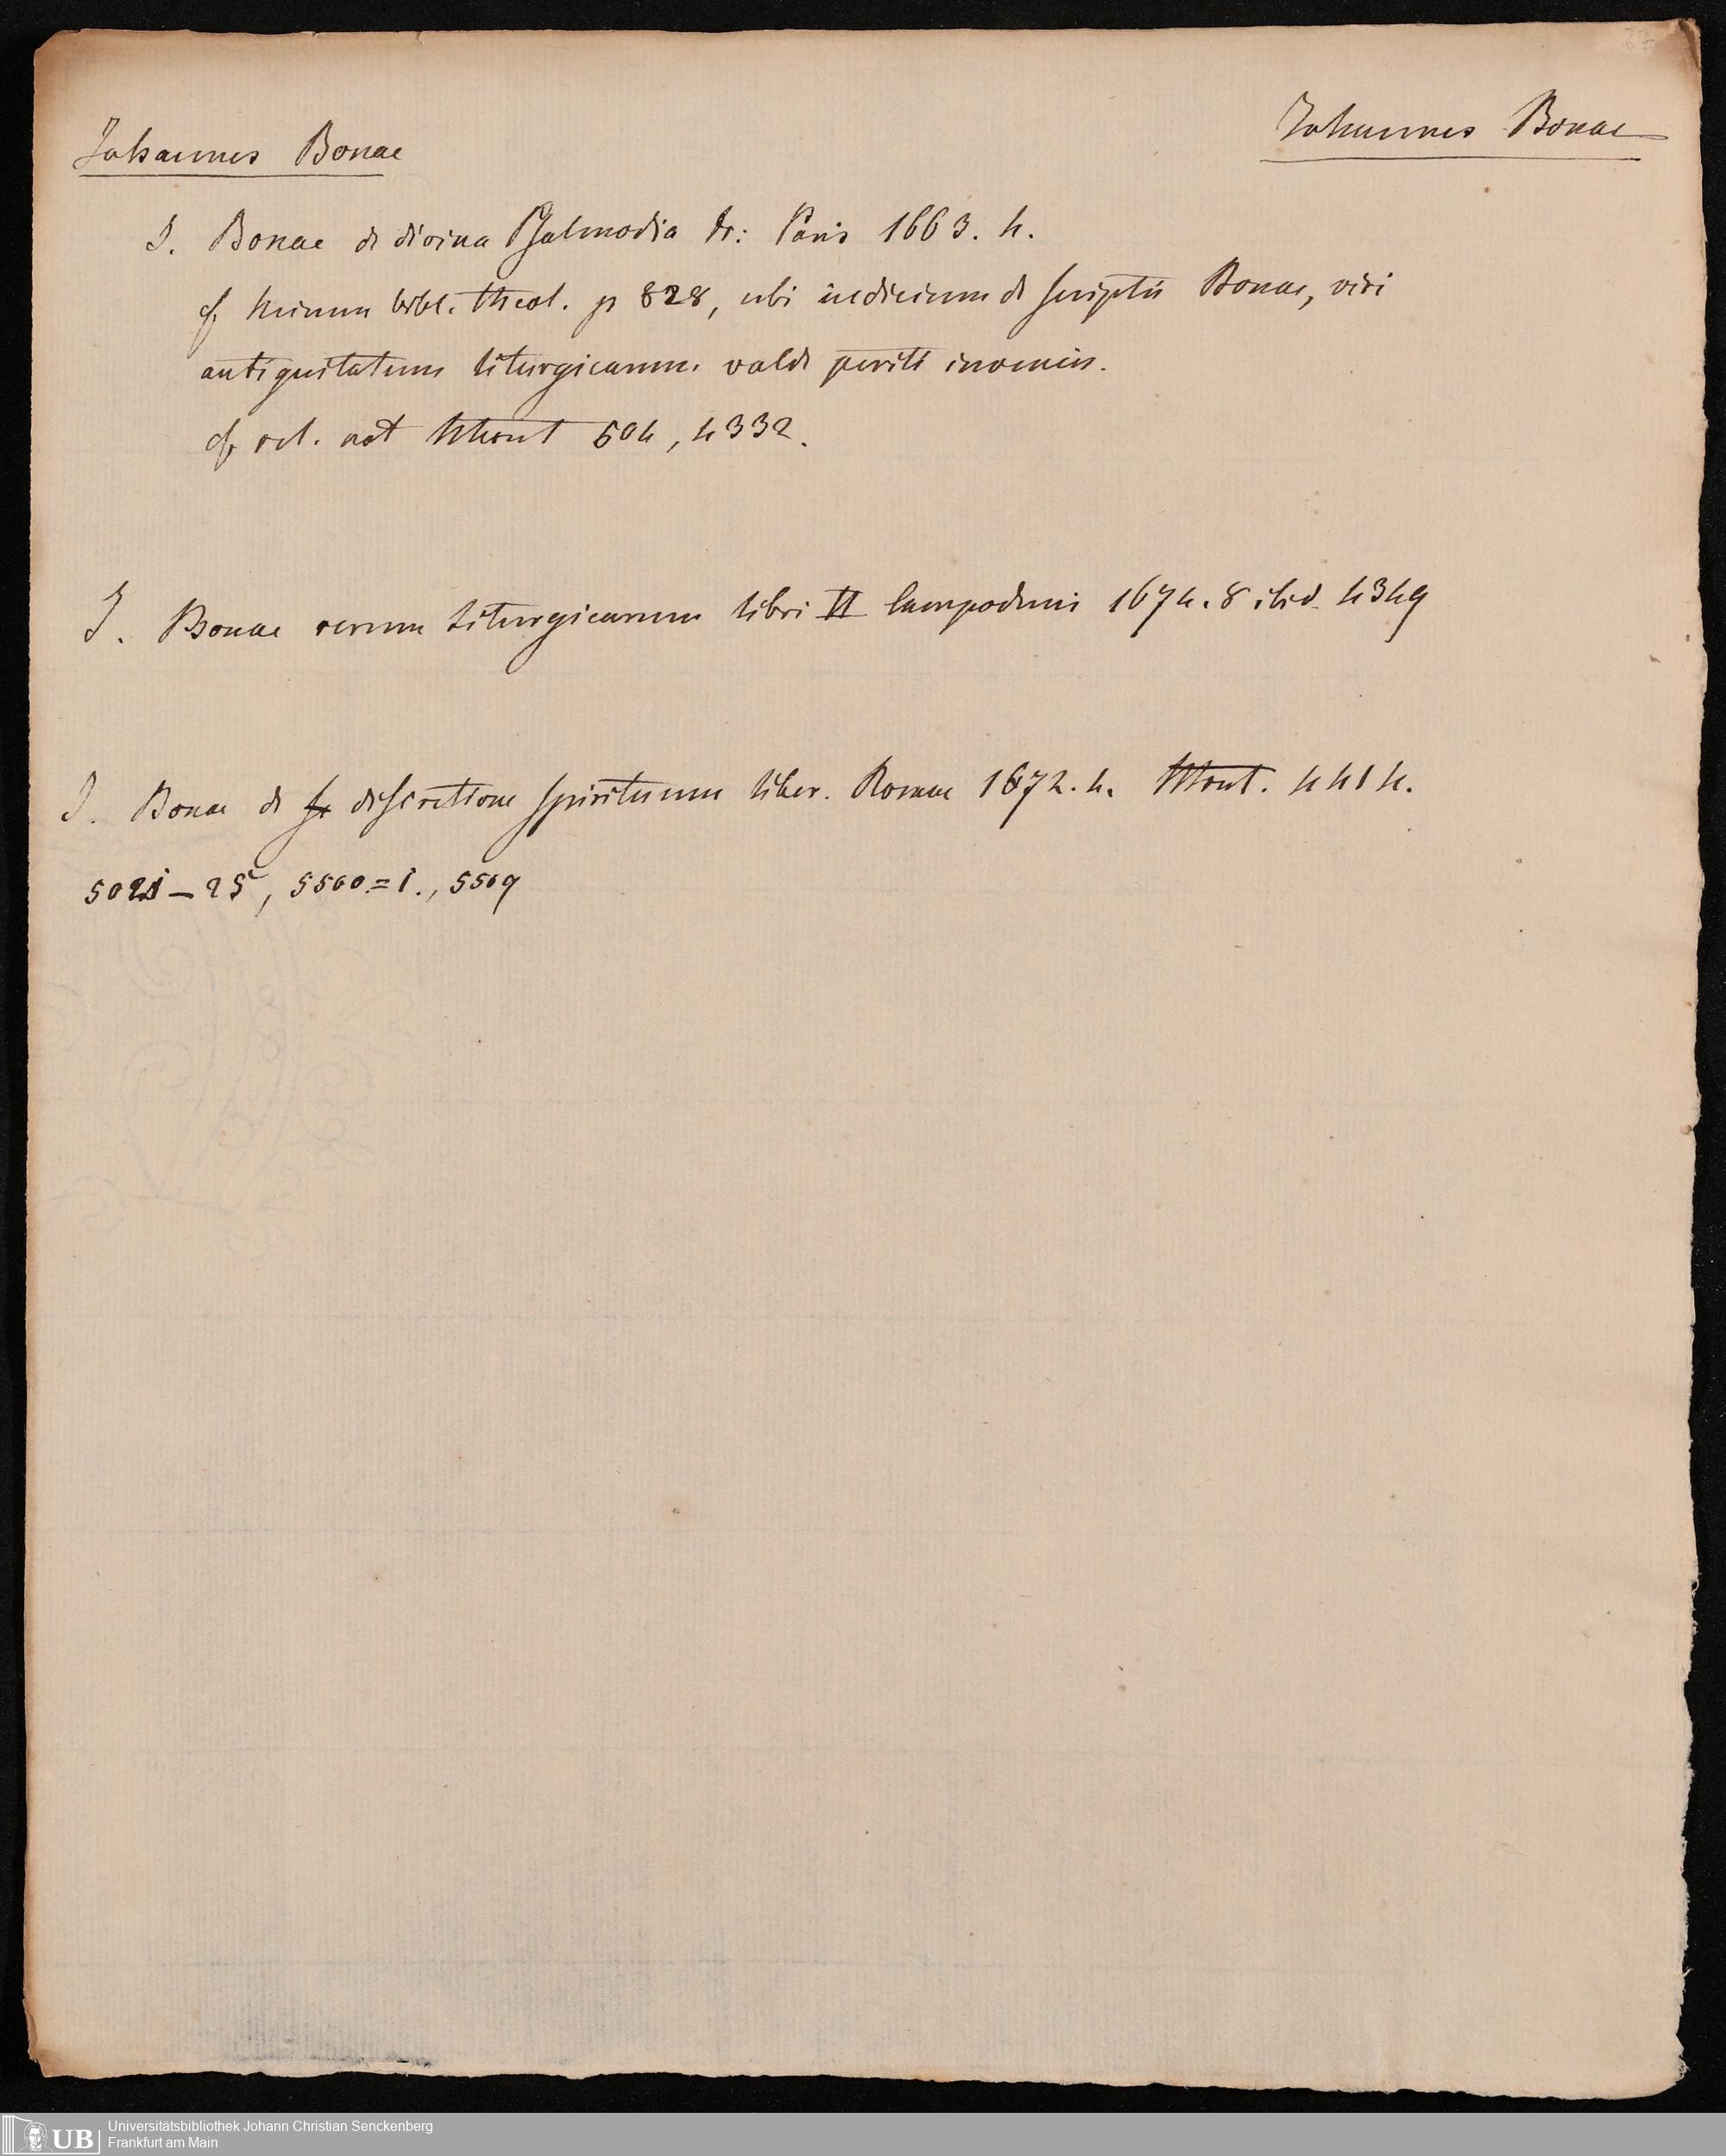 Johannes Bonae
Johannes Bonae
J. Bonae de divina Psalmodia Paris 1663. 4.
cf bibl. theol. p 828, ubi iudicium de scriptis Bonae, viri
antiquitatum liturgicarum valde periti invenies.
cf not Mont 504, 4332.
J. Bonae rerum liturgicarum libri II Campoduni 1674. 8 ibid 4349
J. Bonae de discretione spirituum liber. Romae 1672. 4. Mont. 4414.
5021-25, 5560.=1., 5569
Universitätsbibliothek Johann Christian Senckenberg
Frankfurt am Main
UB